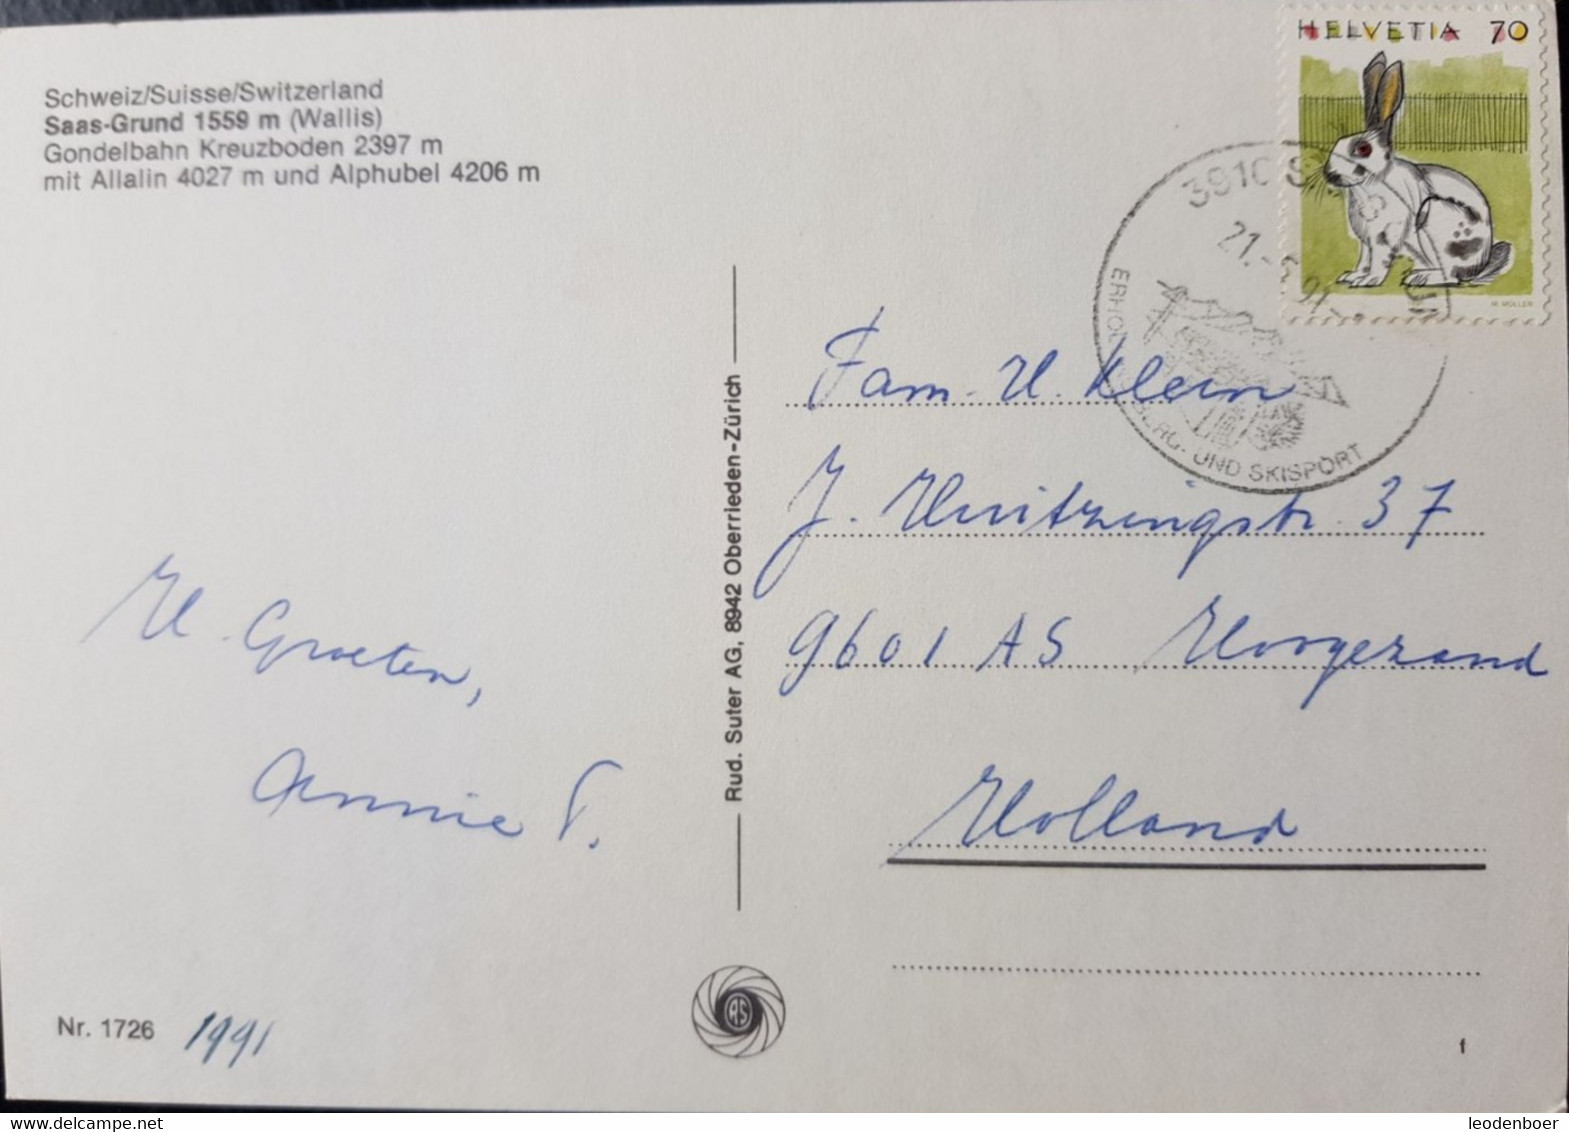 Schweiz/Suisse/Switzerland
Saas-Grund 1559 m (Wallis)
Gondelbahn Kreuzboden 2397 m
mit Allalin 4027 m und Alphubel 4206 m
HELVETIA 70
M. MÜLLER
3910 S
21.
91
BERG- UND SKISPORT
Fam. H. Klein
J. Huitzingstr. 37
9601 AS Hoogezand
Holland
H. Groeten,
Annie T.
Rud. Suter AG, 8942 Oberrieden-Zürich
RS
Nr. 1726
1991
f
leodenboer
delcampe.net